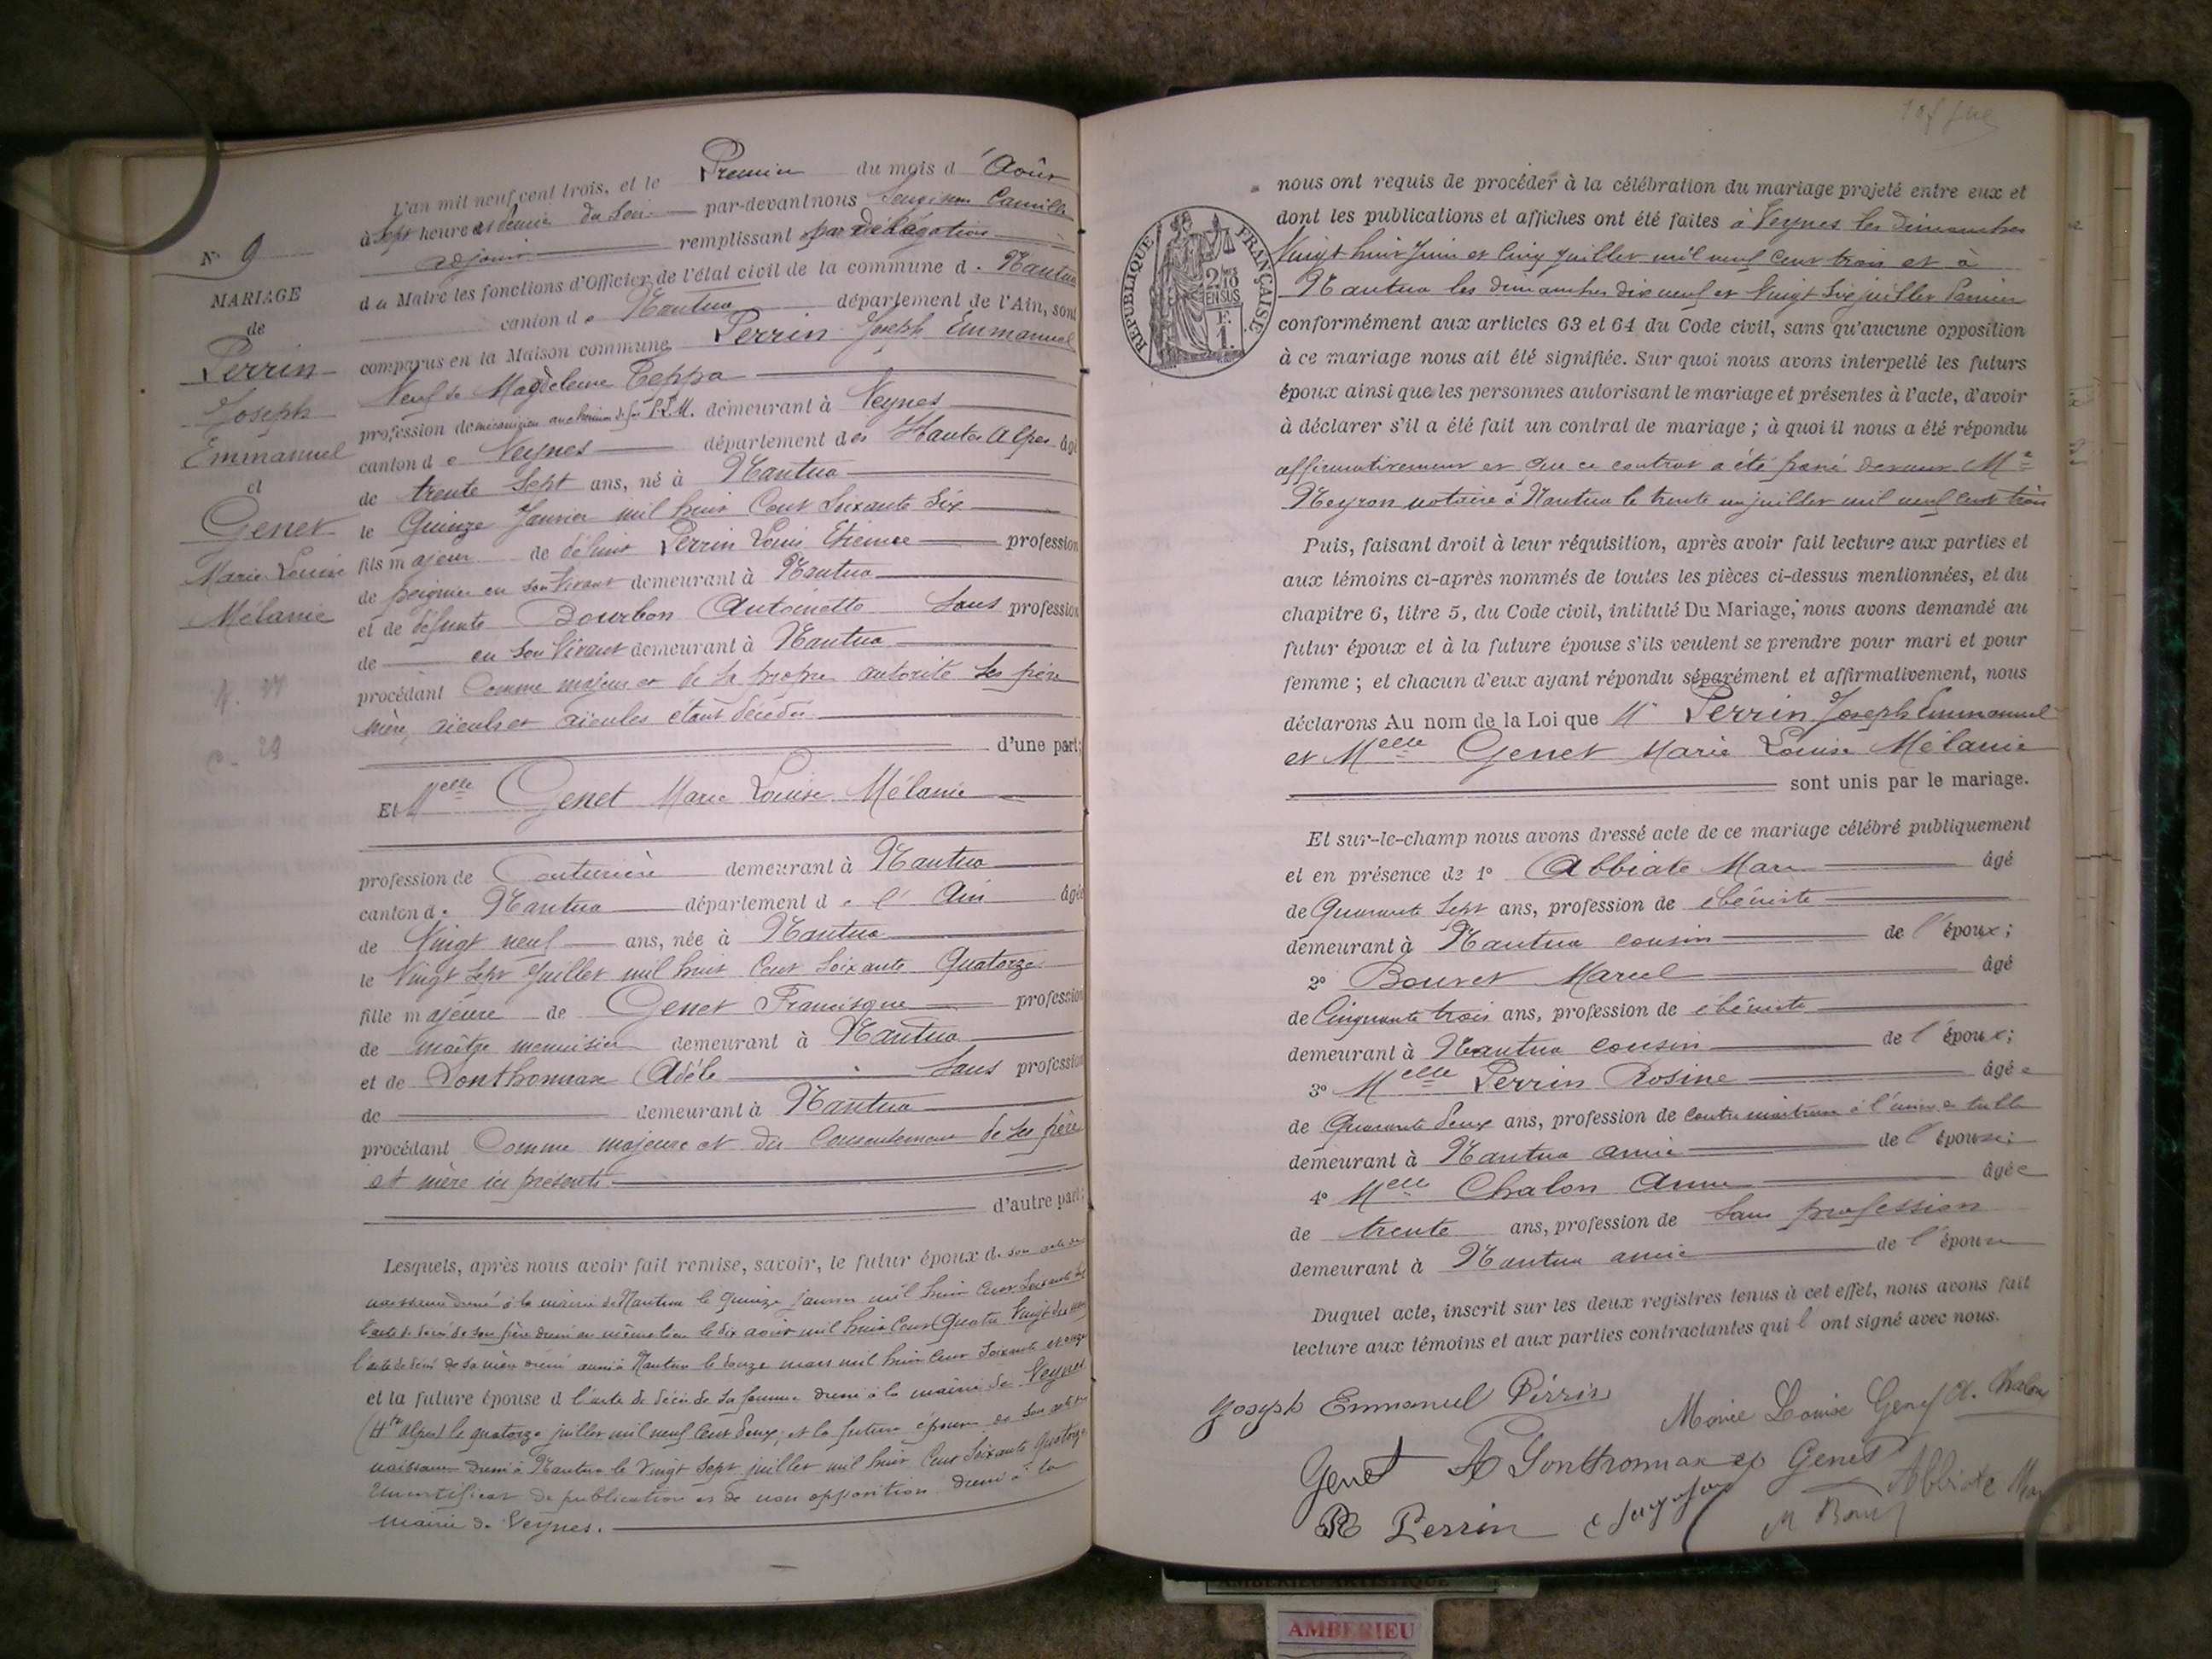 N° 9
MARIAGE
de
Perrin
Joseph
Emmanuel
et
Genet
Marie Louise
Mélanie
L'an mil neuf cent trois, et le Premier du mois d'Août
à Sept heure et demie du Soir par-devant nous Camille
adjoint remplissant par délégation
du Maire les fonctions d'Officier de l'état civil de la commune de Nantua
canton de Nantua département de l'Ain, sont
comparus en la Maison commune Perrin Joseph Emmanuel
Veuf de Magdeleine Peppa
profession de mécanicien au chemin de fer P.L.M. demeurant à Veynes
canton de Veynes département des Hautes Alpes âgé
de trente Sept ans, né à Nantua
le Quinze Janvier mil huit Cent Soixante Six
fils majeur de défunt Perrin Louis Etienne profession
de peignier en son Vivant demeurant à Nantua
et de défunte Bourbon Antoinette Sans profession
de en son Vivant demeurant à Nantua
procédant Comme majeur et de sa propre autorité ses père
mère, aïeuls et aïeules étant décédés
d'une part;
Et Melle Genet Marie Louise Mélanie
profession de Couturière demeurant à Nantua
canton de Nantua département de l'Ain âgée
de Vingt neuf ans, née à Nantua
le Vingt Sept Juillet mil huit Cent Soixante Quatorze
fille majeure de Genet Francisque profession
de maître menuisier demeurant à Nantua
et de Gonthomnax Adèle Sans profession
de demeurant à Nantua
procédant Comme majeure et du Consentement de ses père
et mère ici présents
d'autre part;
Lesquels, après nous avoir fait remise, savoir, le futur époux de son acte de
naissance dressé à la mairie de Nantua le Quinze janvier mil huit Cent Soixante Six
l'acte de décès de son père dressé au même lieu le dix août mil huit Cent Quatre Vingt
l'acte de décès de sa mère dressé aussi à Nantua le douze mars mil huit Cent Soixante et onze
et la future épouse d l'acte de décès de sa femme dressé à la mairie de Veynes
(Htes Alpes) le quatorze juillet mil neuf Cent deux, et la future épouse de son acte de
naissance dressé à Nantua le Vingt Sept juillet mil huit Cent Soixante Quatorze
Un certificat de publication et de non opposition dressé à la
mairie de Veynes.
nous ont requis de procéder à la célébration du mariage projeté entre eux et
dont les publications et affiches ont été faites à Veynes les dimanches
Vingt huit Juin et Cinq Juillet mil neuf Cent trois et à
Nantua les dimanches dix neuf et Vingt Six juillet dernier
conformément aux articles 63 et 64 du Code civil, sans qu'aucune opposition
à ce mariage nous ait été signifiée. Sur quoi nous avons interpellé les futurs
époux ainsi que les personnes autorisant le mariage et présentes à l'acte, d'avoir
à déclarer s'il a été fait un contrat de mariage ; à quoi il nous a été répondu
affirmativement et que ce contrat a été passé devant Me
Neyron notaire à Nantua le trente un juillet mil neuf cent trois
Puis, faisant droit à leur réquisition, après avoir fait lecture aux parties et
aux témoins ci-après nommés de toutes les pièces ci-dessus mentionnées, et du
chapitre 6, titre 5, du Code civil, intitulé Du Mariage, nous avons demandé au
futur époux et à la future épouse s'ils veulent se prendre pour mari et pour
femme ; et chacun d'eux ayant répondu séparément et affirmativement, nous
déclarons Au nom de la Loi que Mr Perrin Joseph Emmanuel
et Melle Genet Marie Louise Mélanie
sont unis par le mariage.
Et sur-le-champ nous avons dressé acte de ce mariage célébré publiquement
et en présence de 1° Abbiate Marc âgé
de Quarante Sept ans, profession de ébéniste
demeurant à Nantua cousin de l'époux;
2° Bouvet Marcel âgé
de Cinquante trois ans, profession de ébéniste
demeurant à Nantua cousin de l'époux;
3° Melle Perrin Rosine âgée
de Quarante deux ans, profession de contre maitresse à l'usine à tulle
demeurant à Nantua amie de l'épouse;
4° Melle Chalon Anna âgée
de trente ans, profession de Sans profession
demeurant à Nantua amie de l'épouse
Duquel acte, inscrit sur les deux registres tenus à cet effet, nous avons fait
lecture aux témoins et aux parties contractantes qui l'ont signé avec nous.
Joseph Emmanuel Pérrin
Marie Louise Genet A. Chalon
Genet A Gonthomnax ep Genet
R Perrin
Abbiate Marc
REPUBLIQUE FRANÇAISE
2/10 EN SUS
1 F.
AMBERIEU